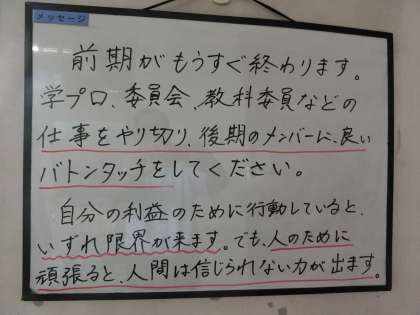 メッセージ
前期がもうすぐ終わります。
学プロ、委員会、教科委員などの
仕事をやり切り、後期のメンバーに、良い
バトンタッチをしてください。
自分の利益のために行動していると、
いずれ限界が来ます。でも、人のために
頑張ると、人間は信じられない力が出ます。